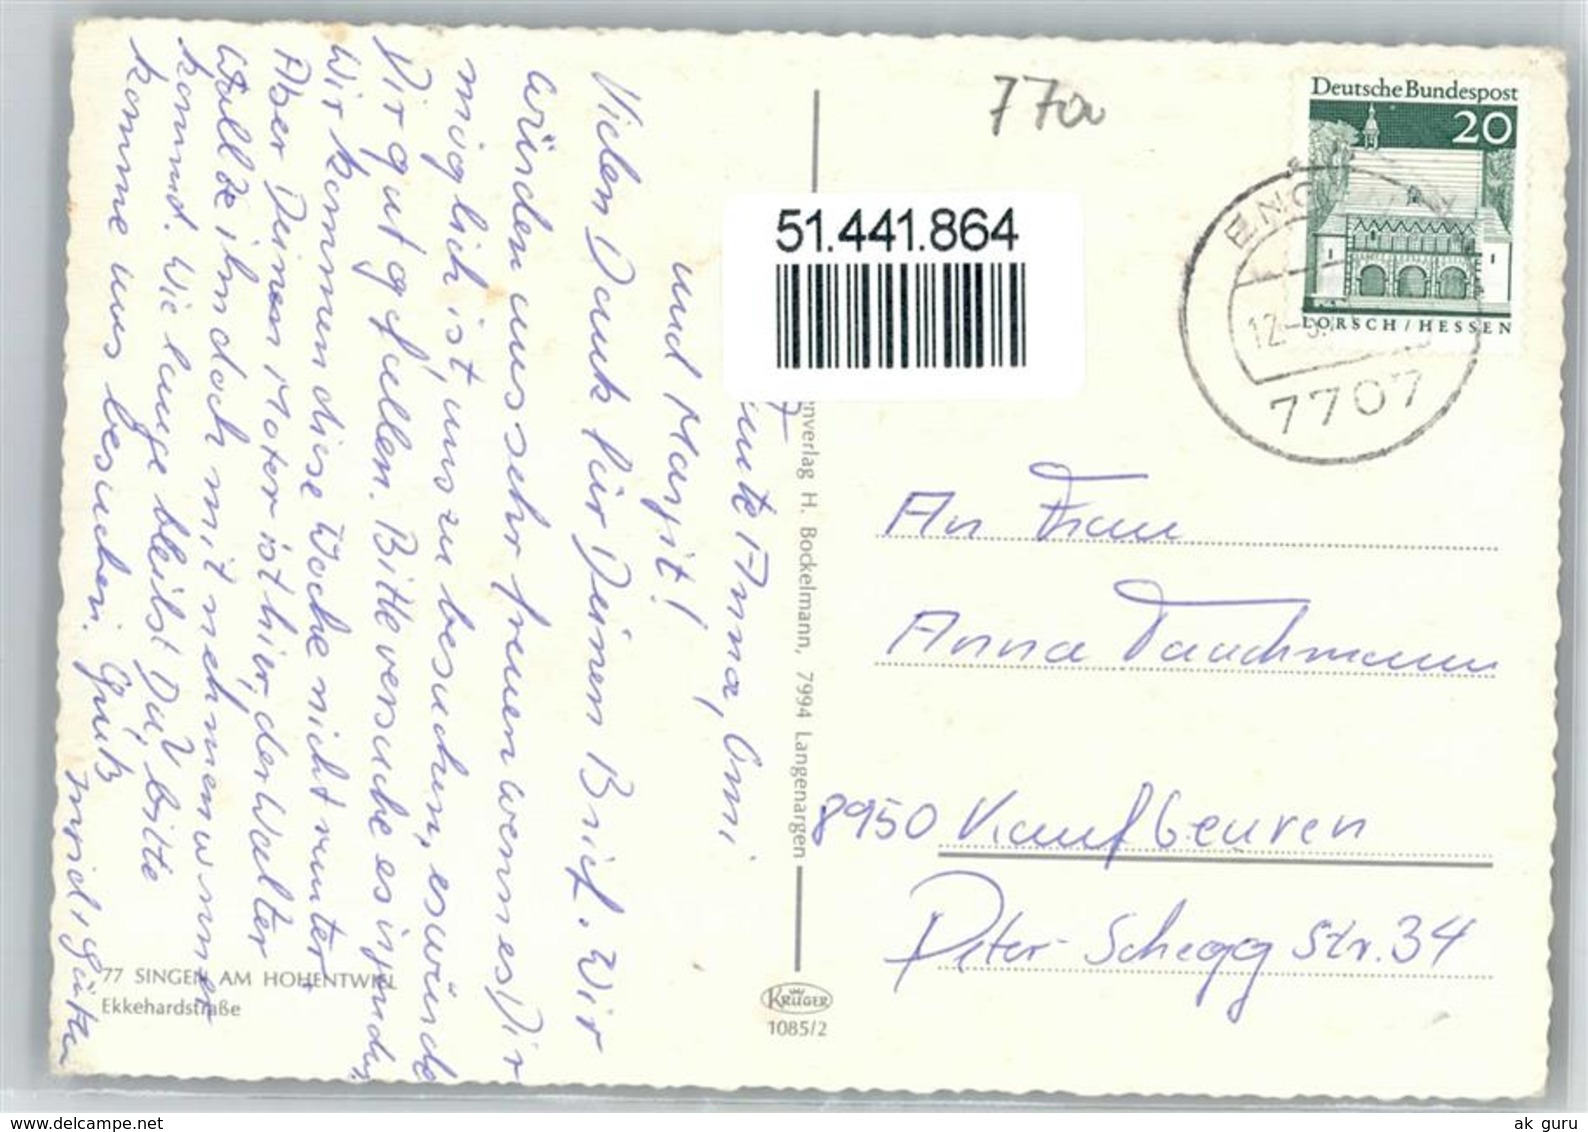 77a
Deutsche Bundespost
20
LORSCH/HESSEN
12.
7707
51.441.864
Tante Anna, Omi
und Margit!
Vielen Dank für Deinen Brief. Wir
würden uns sehr freuen wenn es Dir
möglich ist, uns zu besuchen, es würde
Dir gut gefallen. Bitte versuche es
Wir kommen diese Woche nicht runter
Aber Deinen Vater ist hier, der Walter
Wallze ihn doch mit nehmen wenn er
kommt. Wie lange bleibst Du? bitte
komme uns besuchen. Gruß
An Frau
Anna Tauchmann
8950 Kaufbeuren
Peter-Schegg Str. 34
enverlag H. Bockelmann, 7994 Langenargen
77 SINGEN AM HOHENTWIEL
Ekkehardstraße
KRÜGER
1085/2
ak guru